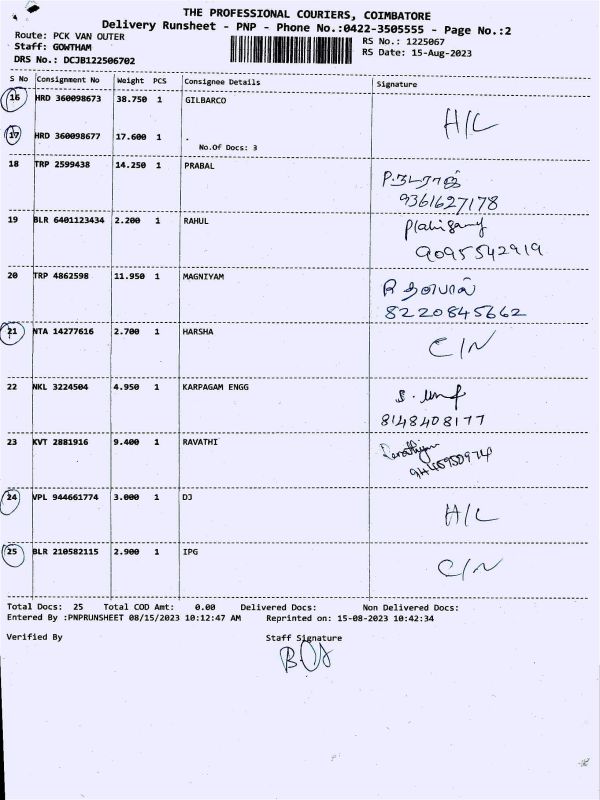 THE PROFESSIONAL COURIERS, COIMBATORE
Delivery Runsheet - PNP - Phone No.:0422-3505555 - Page No.:2
Route: PCK VAN OUTER
RS No.: 1225067
Staff: GOWTHAM
RS Date: 15-Aug-2023
DRS No.: DCJB122506702
S No Consignment No Weight PCS Consignee Details Signature
16 HRD 360098673 38.750 1 GILBARCO
H/L
17 HRD 360098677 17.600 1 .
No.Of Docs: 3
18 TRP 2599438 14.250 1 PRABAL
P.நடராஜ்
9361627178
19 BLR 6401123434 2.200 1 RAHUL
9095542919
20 TRP 4862598 11.950 1 MAGNIYAM
8220845662
21 NTA 14277616 2.700 1 HARSHA
C/N
22 NKL 3224504 4.950 1 KARPAGAM ENGG
8148408177
23 KVT 2881916 9.400 1 RAVATHI
24 VPL 944661774 3.000 1 DJ
H/L
25 BLR 210582115 2.900 1 IPG
C/N
Total Docs: 25 Total COD Amt: 0.00 Delivered Docs: Non Delivered Docs:
Entered By :PNPRUNSHEET 08/15/2023 10:12:47 AM Reprinted on: 15-08-2023 10:42:34
Verified By Staff Signature